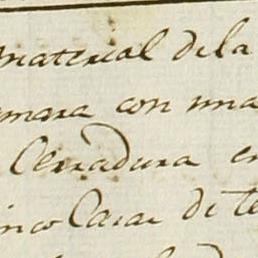 material de la
mara con una
Cerradura en
inco Casas de te